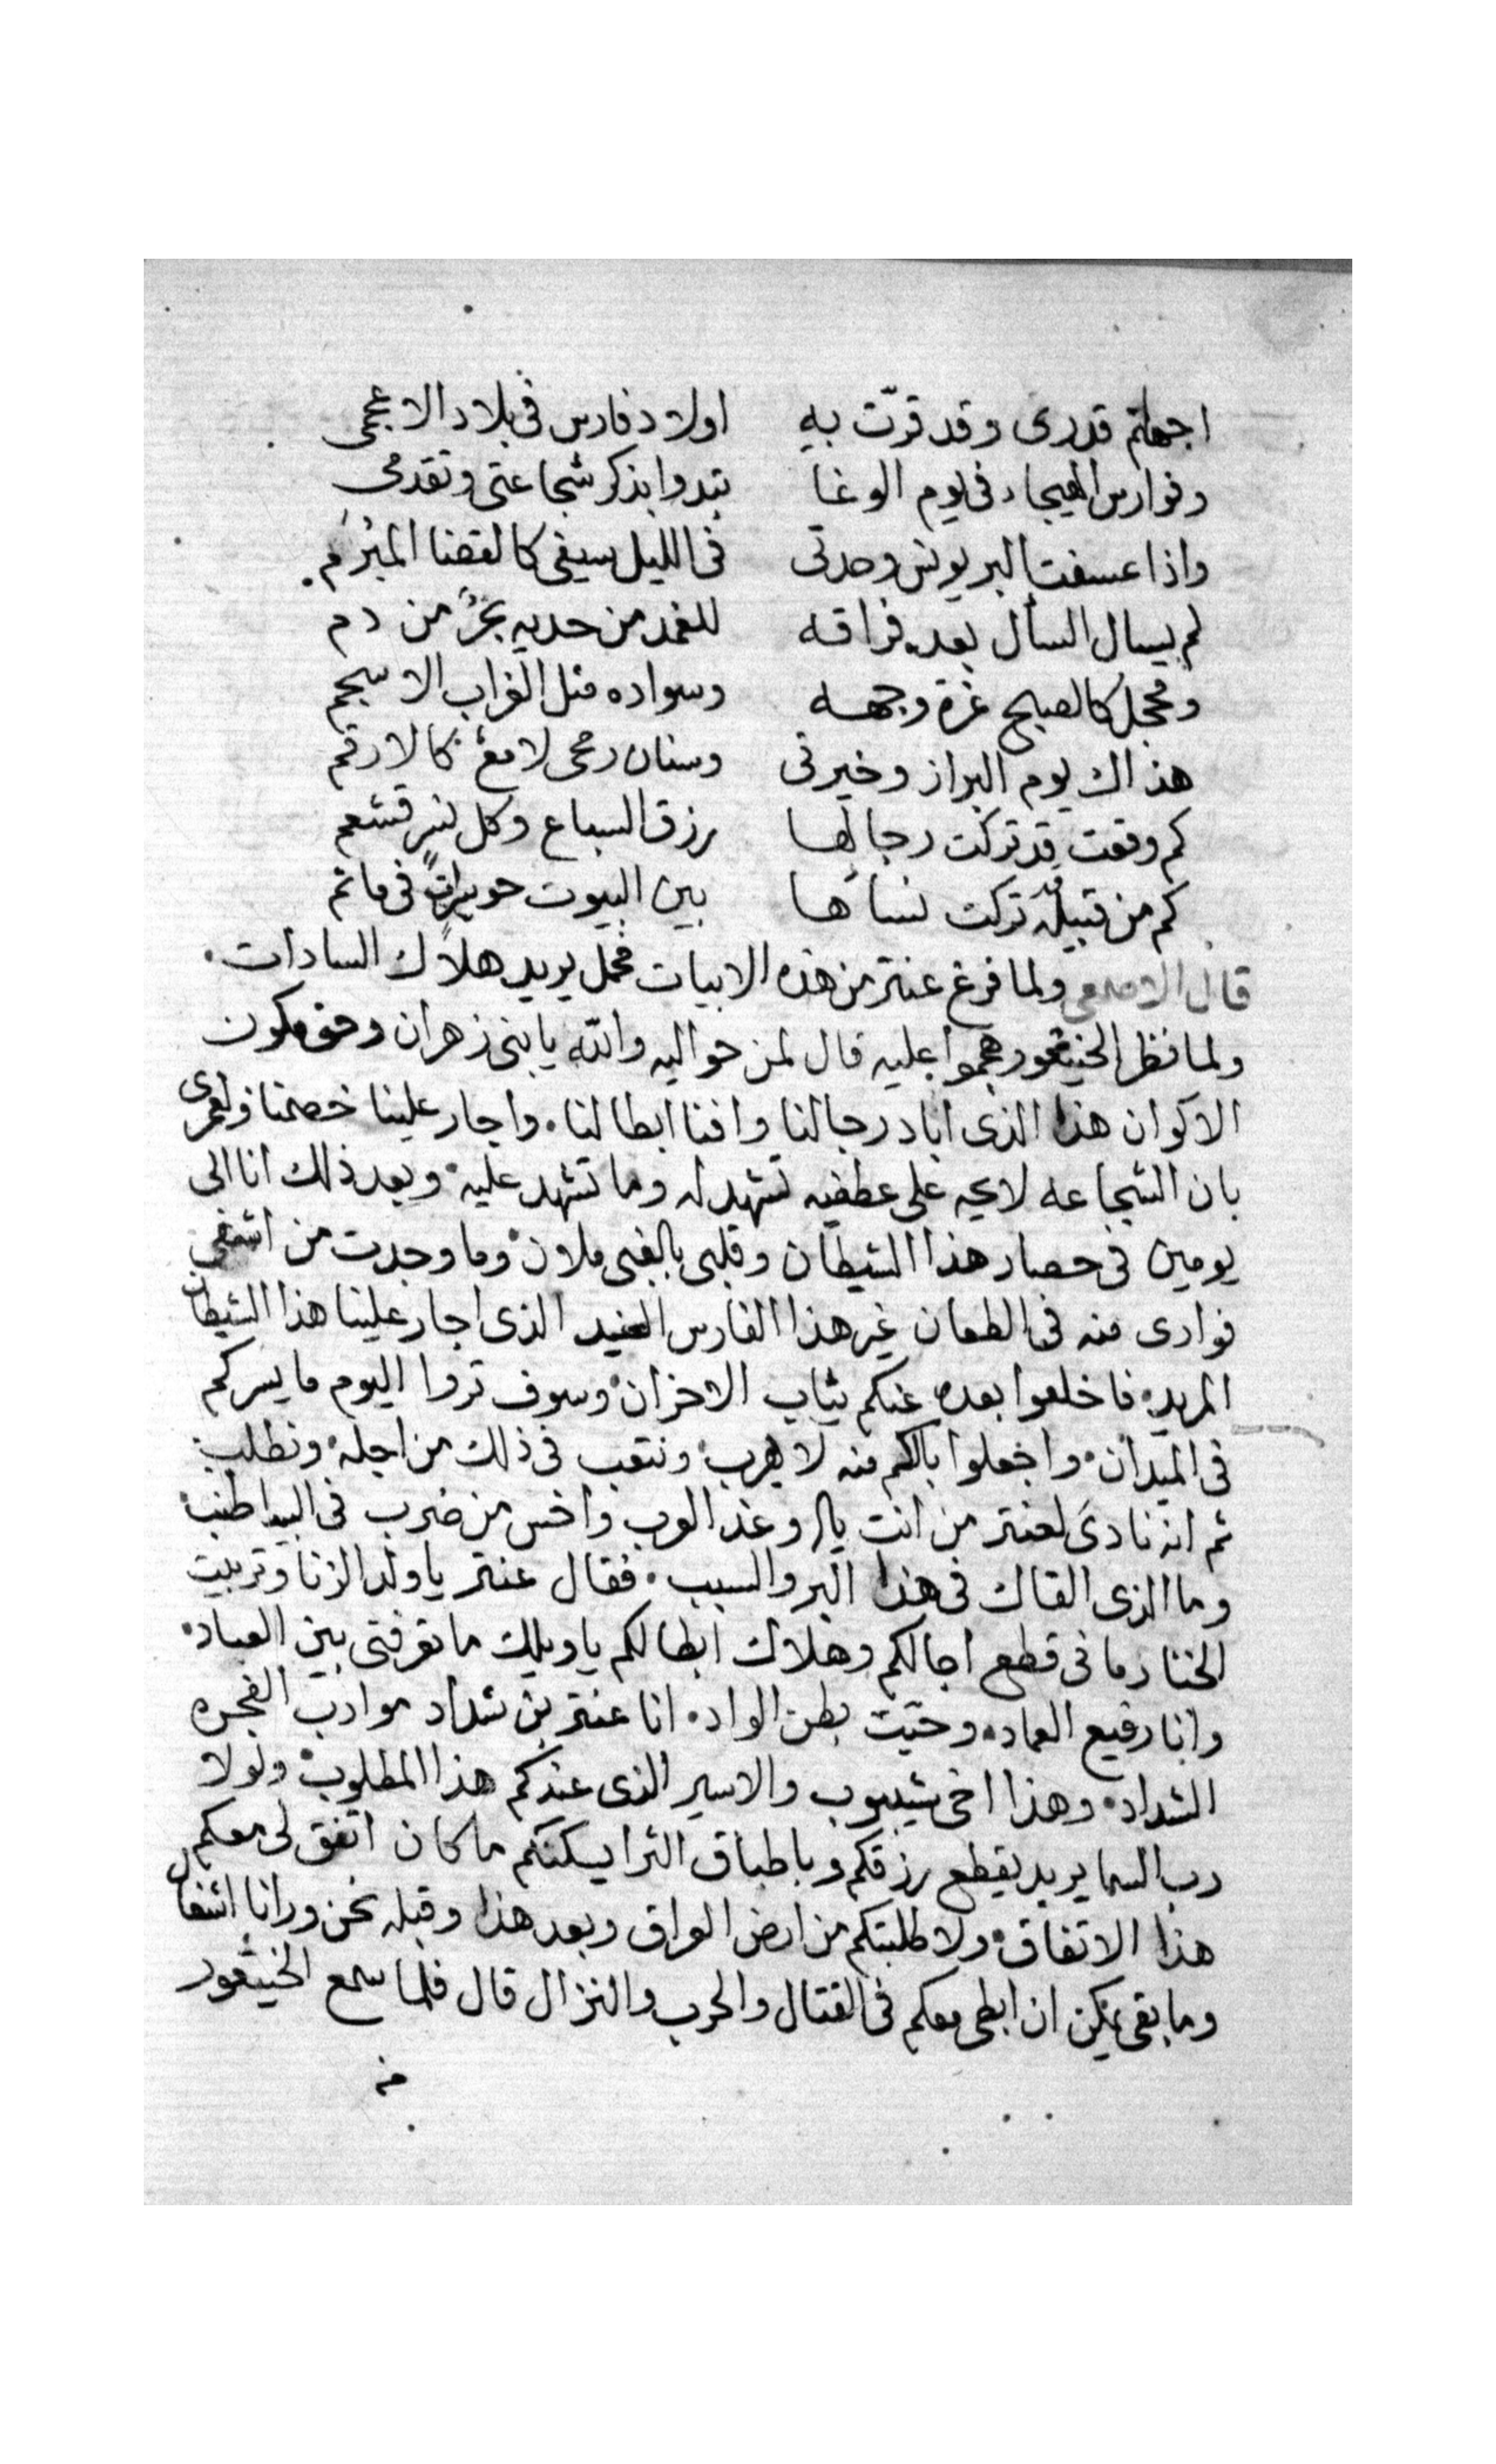 اجهلتم قدرى وقد قرّت به اولاد فارس فى بلاد الاعجمى
وفوارس الهيجاء فى يوم الوغا تبدوا بذكر شجاعتى وتقدمى
واذا عسفت البر يونس وحدتى فى الليل سيفى كالقضا المبُرَم
لم يسال السأل بعد فراقه للغمد من حديه بحرٌ من دم
ومحجل كالصبح غرة وجهه وسواده مثل الغراب الاسحم
هذاك يوم البراز وخيرتى وسنان رمحى لامعٌ كالارقم
كم وقعت قد تركت رجالها رزق السباع وكل نسر قشعم
كم من قبيلة قد تركت نساها بين البيوت حويراتٍ فى ماتم
قال الاصمعى ولما فرغ عنتر من هذه الابيات فحمل يريد هلاك السادات
ولما نظر الخيثعور هجموا عليه قال لمن حواليه والله يا بنى زهران وحق مكون
الاكوان هذا الذى اباد رجالنا وافنا ابطالنا واجار علينا خصمنا ولعمرى
بان الشجاعه لايحه على عطفيه تشهد له وما تشهد عليه وبعد ذلك انا الى
يومين فى حصار هذا الشيطان وقلبى بالغبن ملان وما وجدت من اشفى
فوادى منه فى الطعان غير هذا الفارس العنيد الذى اجار علينا هذا الشيطان
المريد فاخلعوا بعده عنكم ثياب الاحزان وسوف تروا اليوم ما يسركم
فى الميدان واجعلوا بالكم منه لا يهرب ونتعب فى ذلك من اجله ونطلب
ثم انه نادىَ لعنتر من انت يا وغد العرب واخس من ضرب فى البيدا طنب
وما الذى القاك فى هذا البر والسبب فقال عنتر يا ولد الزنا وتربيت
الخنا رمانى قطع اجالكم وهلاك ابطالكم يا ويلك ما تعرفتى بين العباد
وانا رفيع العماد وحيّت بطن الواد انا عنتر بن شداد موادب الفجره
الشداد وهذا اخى شيبوب والاسير الذى عندكم هذا المطلوب ولولا
رب السما يريد يقطع رزقكم وباطباق الثرا يسكنكم ما كان اتفق لى معكم
هذا الاتفاق ولا طلبتكم من ارض العراق وبعد هذا وقبله نحن ورانا اشغال
وما بقى يمكن ان ابطى معكم فى القتال والحرب والنزال قال فلما سمع الخيثعور